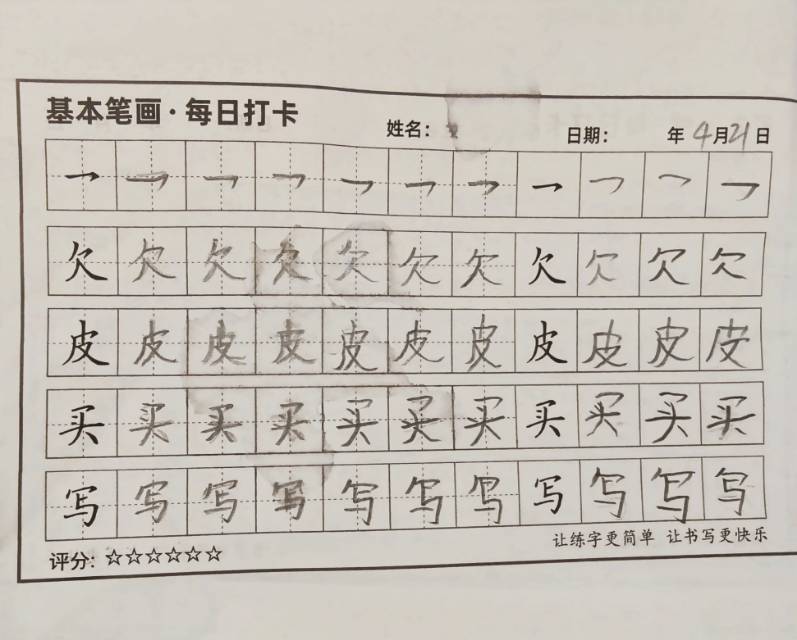 基本笔画·每日打卡
姓名: 日期: 年 4月21日
欠 欠 欠 欠 欠 欠 欠 欠 欠 欠 欠
皮 皮 皮 皮 皮 皮 皮 皮 皮 皮 皮
买 买 买 买 买 买 买 买 买 买 买
写 写 写 写 写 写 写 写 写 写 写
评分: ☆☆☆☆☆☆ 让练字更简单 让书写更快乐